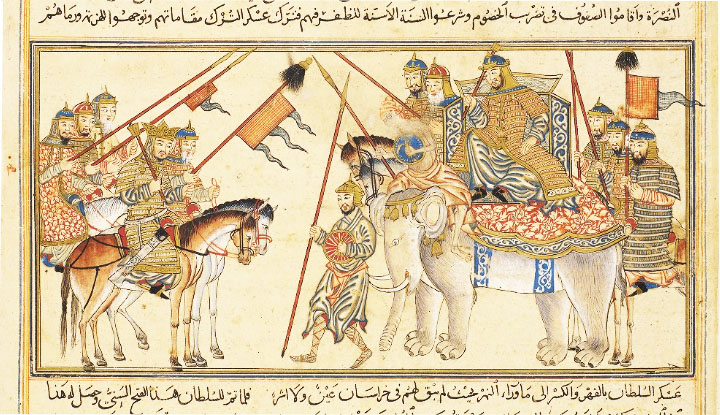 النصرة واقاموا السيوف في تضريب الخصوم وشرعوا السنة الاسنة للظفر فيهم فترك عسكر الترك مقاماتهم وتوجهوا للهزيمة ورماهم
عسكر السلطان بالقهر والكسر الى ماوراء النهر بحيث لم يبق لهم في خراسان عين ولا اثر فلما تم للسلطان هذا الفتح السني وحصل له هذا